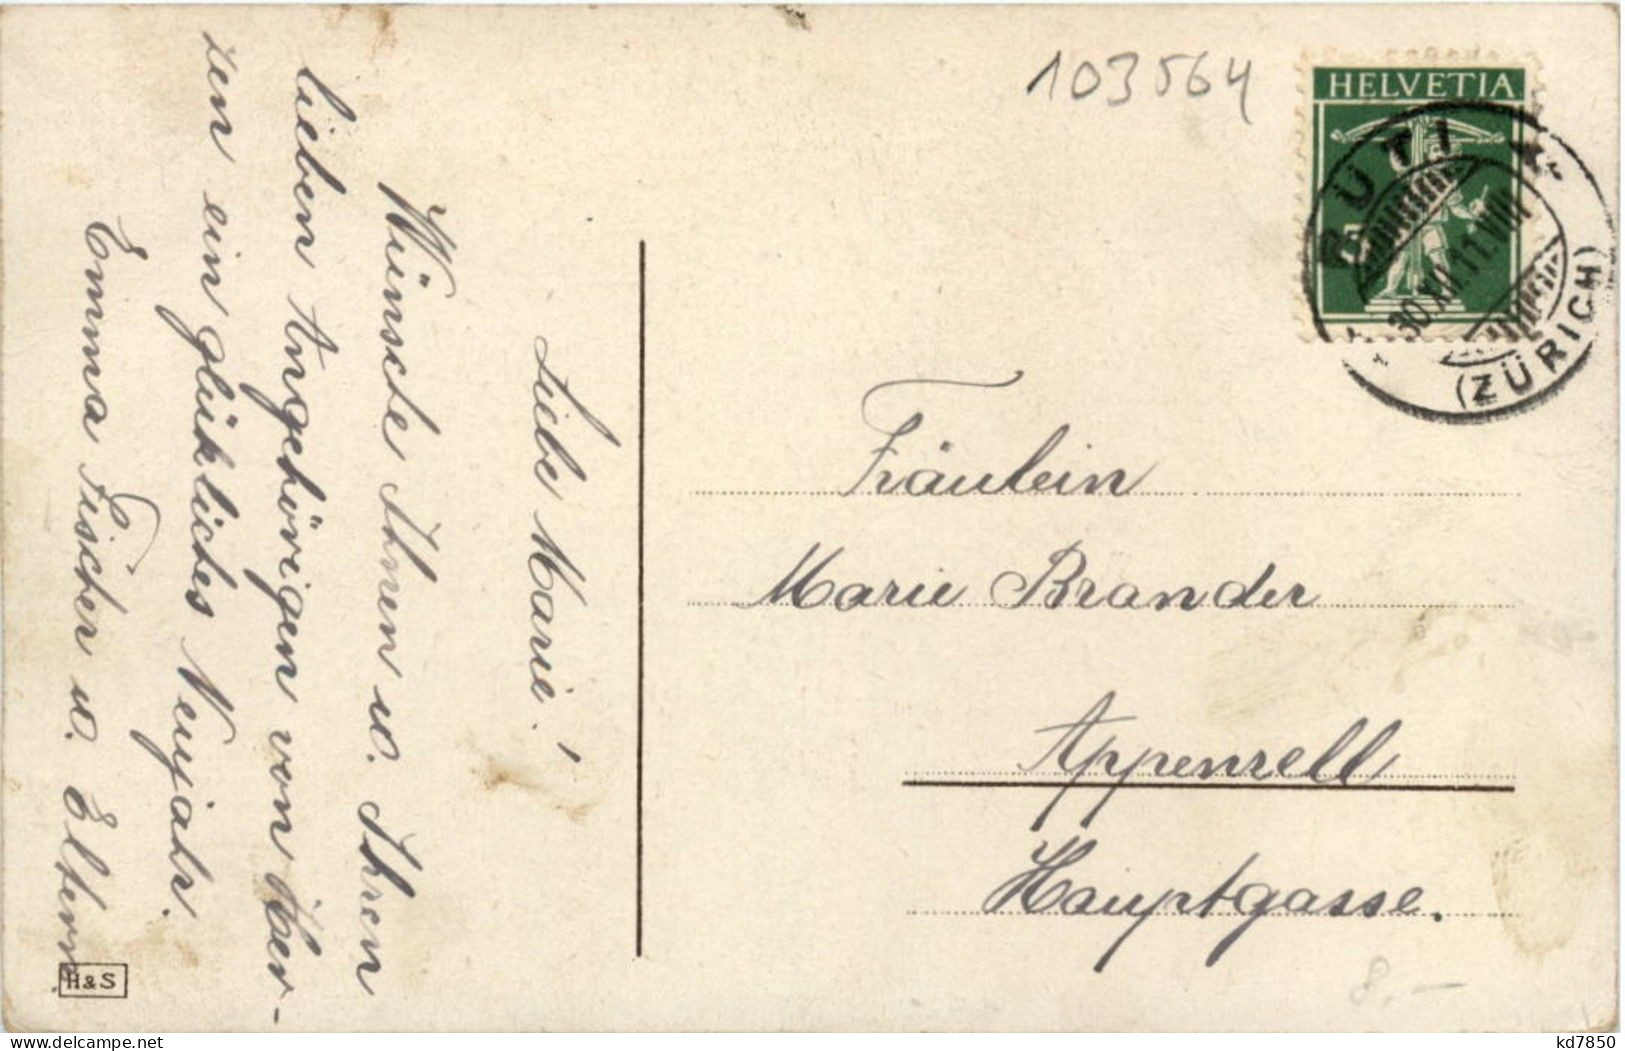 Liebe Marie!
Wünsche Ihnen u. Ihren
lieben Angehörigen von Her-
zen ein glükliches Neujahr.
Emma Fischer u. Eltern
H & S
103564
HELVETIA
5
RÜTI
30.XII.11.VIII
(ZÜRICH)
Fräulein
Marie Brander
Appenzell
Hauptgasse.
8.–
delcampe.net
kd7850